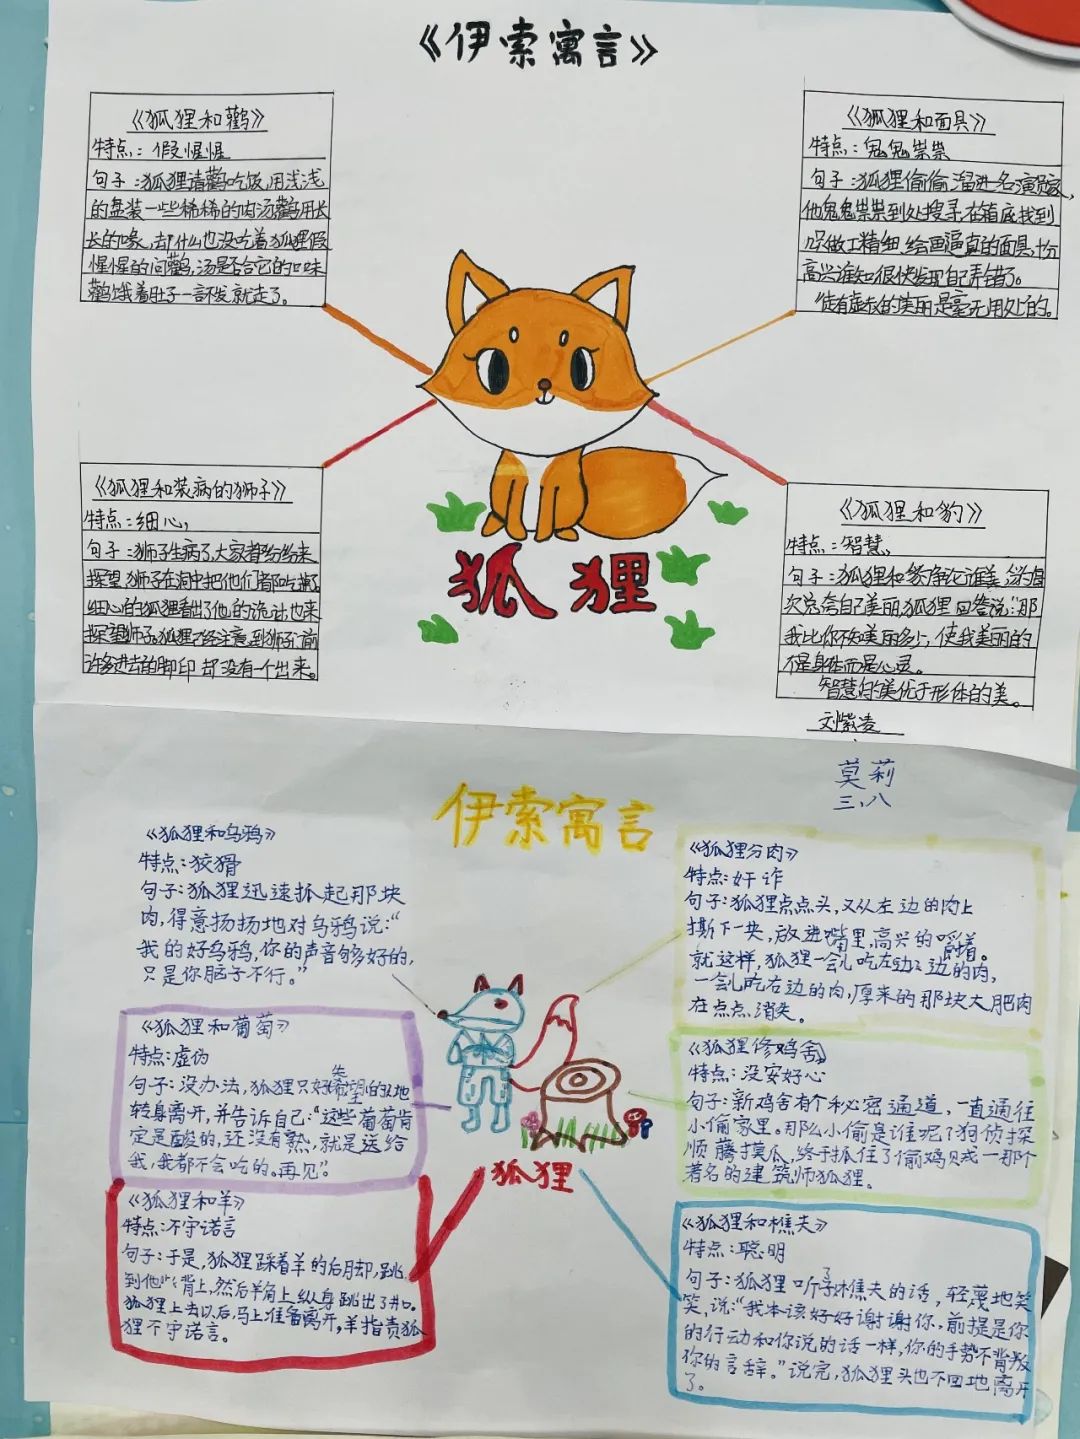 《伊索寓言》
《狐狸和鹳》
特点：假惺惺
句子：狐狸请鹳吃饭，用浅浅
的盘装一些稀稀的肉汤鹳用长
长的喙，却什么也没吃着狐狸假
惺惺的问鹳，汤是否合它的口味
鹳饿着肚子一言不发就走了。
《狐狸和面具》
特点：鬼鬼祟祟
句子：狐狸偷偷溜进名演员家，
他鬼鬼祟祟到处搜寻，在箱底找到
做工精细绘画逼真的面具，十分
高兴谁知很快发现自己弄错了。
徒有虚衣的美丽是毫无用处的。
《狐狸和装病的狮子》
特点：细心，
句子：狮子生病了，大家都纷纷来
探望，狮子在洞中把他们都吃掉了
细心的狐狸看出了他的诡计，也来
探望狮子。狐狸已经注意到狮子前
许多进去的脚印却没有一个出来。
《狐狸和豹》
特点：智慧
句子：狐狸和豹争论谁美，豹每
次总夸自己美丽，狐狸回答说：“那
我比你不知美丽多少，使我美丽的
不是身体而是心灵。
智慧的美优于形体的美。
刘紫凌
狐狸
莫莉
三、八
伊索寓言
《狐狸和乌鸦》
特点：狡猾
句子：狐狸迅速抓起那块
肉，得意扬扬地对乌鸦说：“
我的好乌鸦，你的声音够好的，
只是你脑子不行。”
《狐狸和葡萄》
特点：虚伪
句子：没办法，狐狸只好失望的地
转身离开，并告诉自己：“这些葡萄肯
定是酸的，还没有熟，就是送给
我，我都不会吃的。再见”。
《狐狸和羊》
特点：不守诺言
句子：于是，狐狸踩着羊的后脚，跳
到他背上，然后羊角上，纵身跳出了井口。
狐狸上去以后，马上准备离开，羊指责狐
狸不守诺言。
《狐狸分肉》
特点：奸诈
句子：狐狸点点头，又从左边的肉上
撕下一块，放进嘴里，高兴的嚼着。
就这样，狐狸一会儿吃左边的肉，
一会儿吃右边的肉，原来的那块大肥肉
在点点消失。
《狐狸修鸡舍》
特点：没安好心
句子：新鸡舍有个秘密通道，一直通往
小偷家里。那么小偷是谁呢？狗侦探
顺藤摸瓜，终于抓住了偷鸡贼—那个
著名的建筑师狐狸。
《狐狸和樵夫》
特点：聪明
句子：狐狸听了樵夫的话，轻蔑地笑
笑，说：“我本该好好谢谢你，前提是你
的行动和你说的话一样，你的手势不背叛
你的言辞。”说完，狐狸头也不回地离开
了。
狐狸